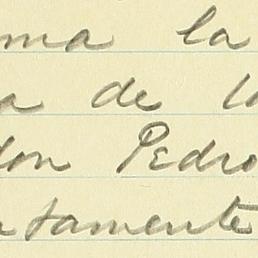 ma la
a de la
don Pedro
tamente